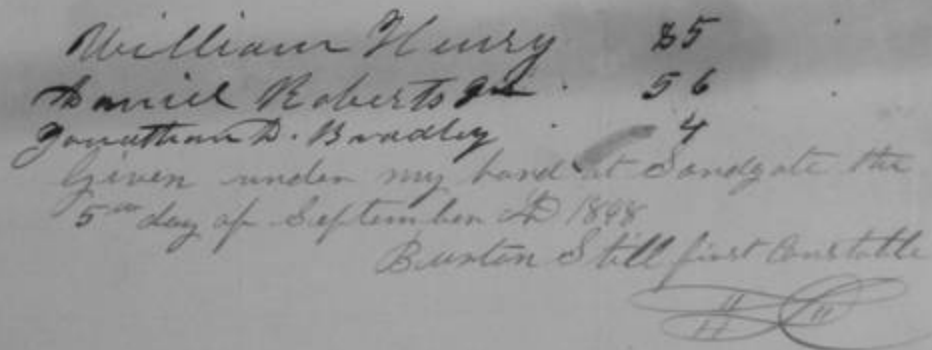 William Henry 85
Daniel Roberts Jr. 56
Jonathan D. Bradley 4
Given under my hand at Sandgate this
5th day of September AD 1848
Burton Still first Constable